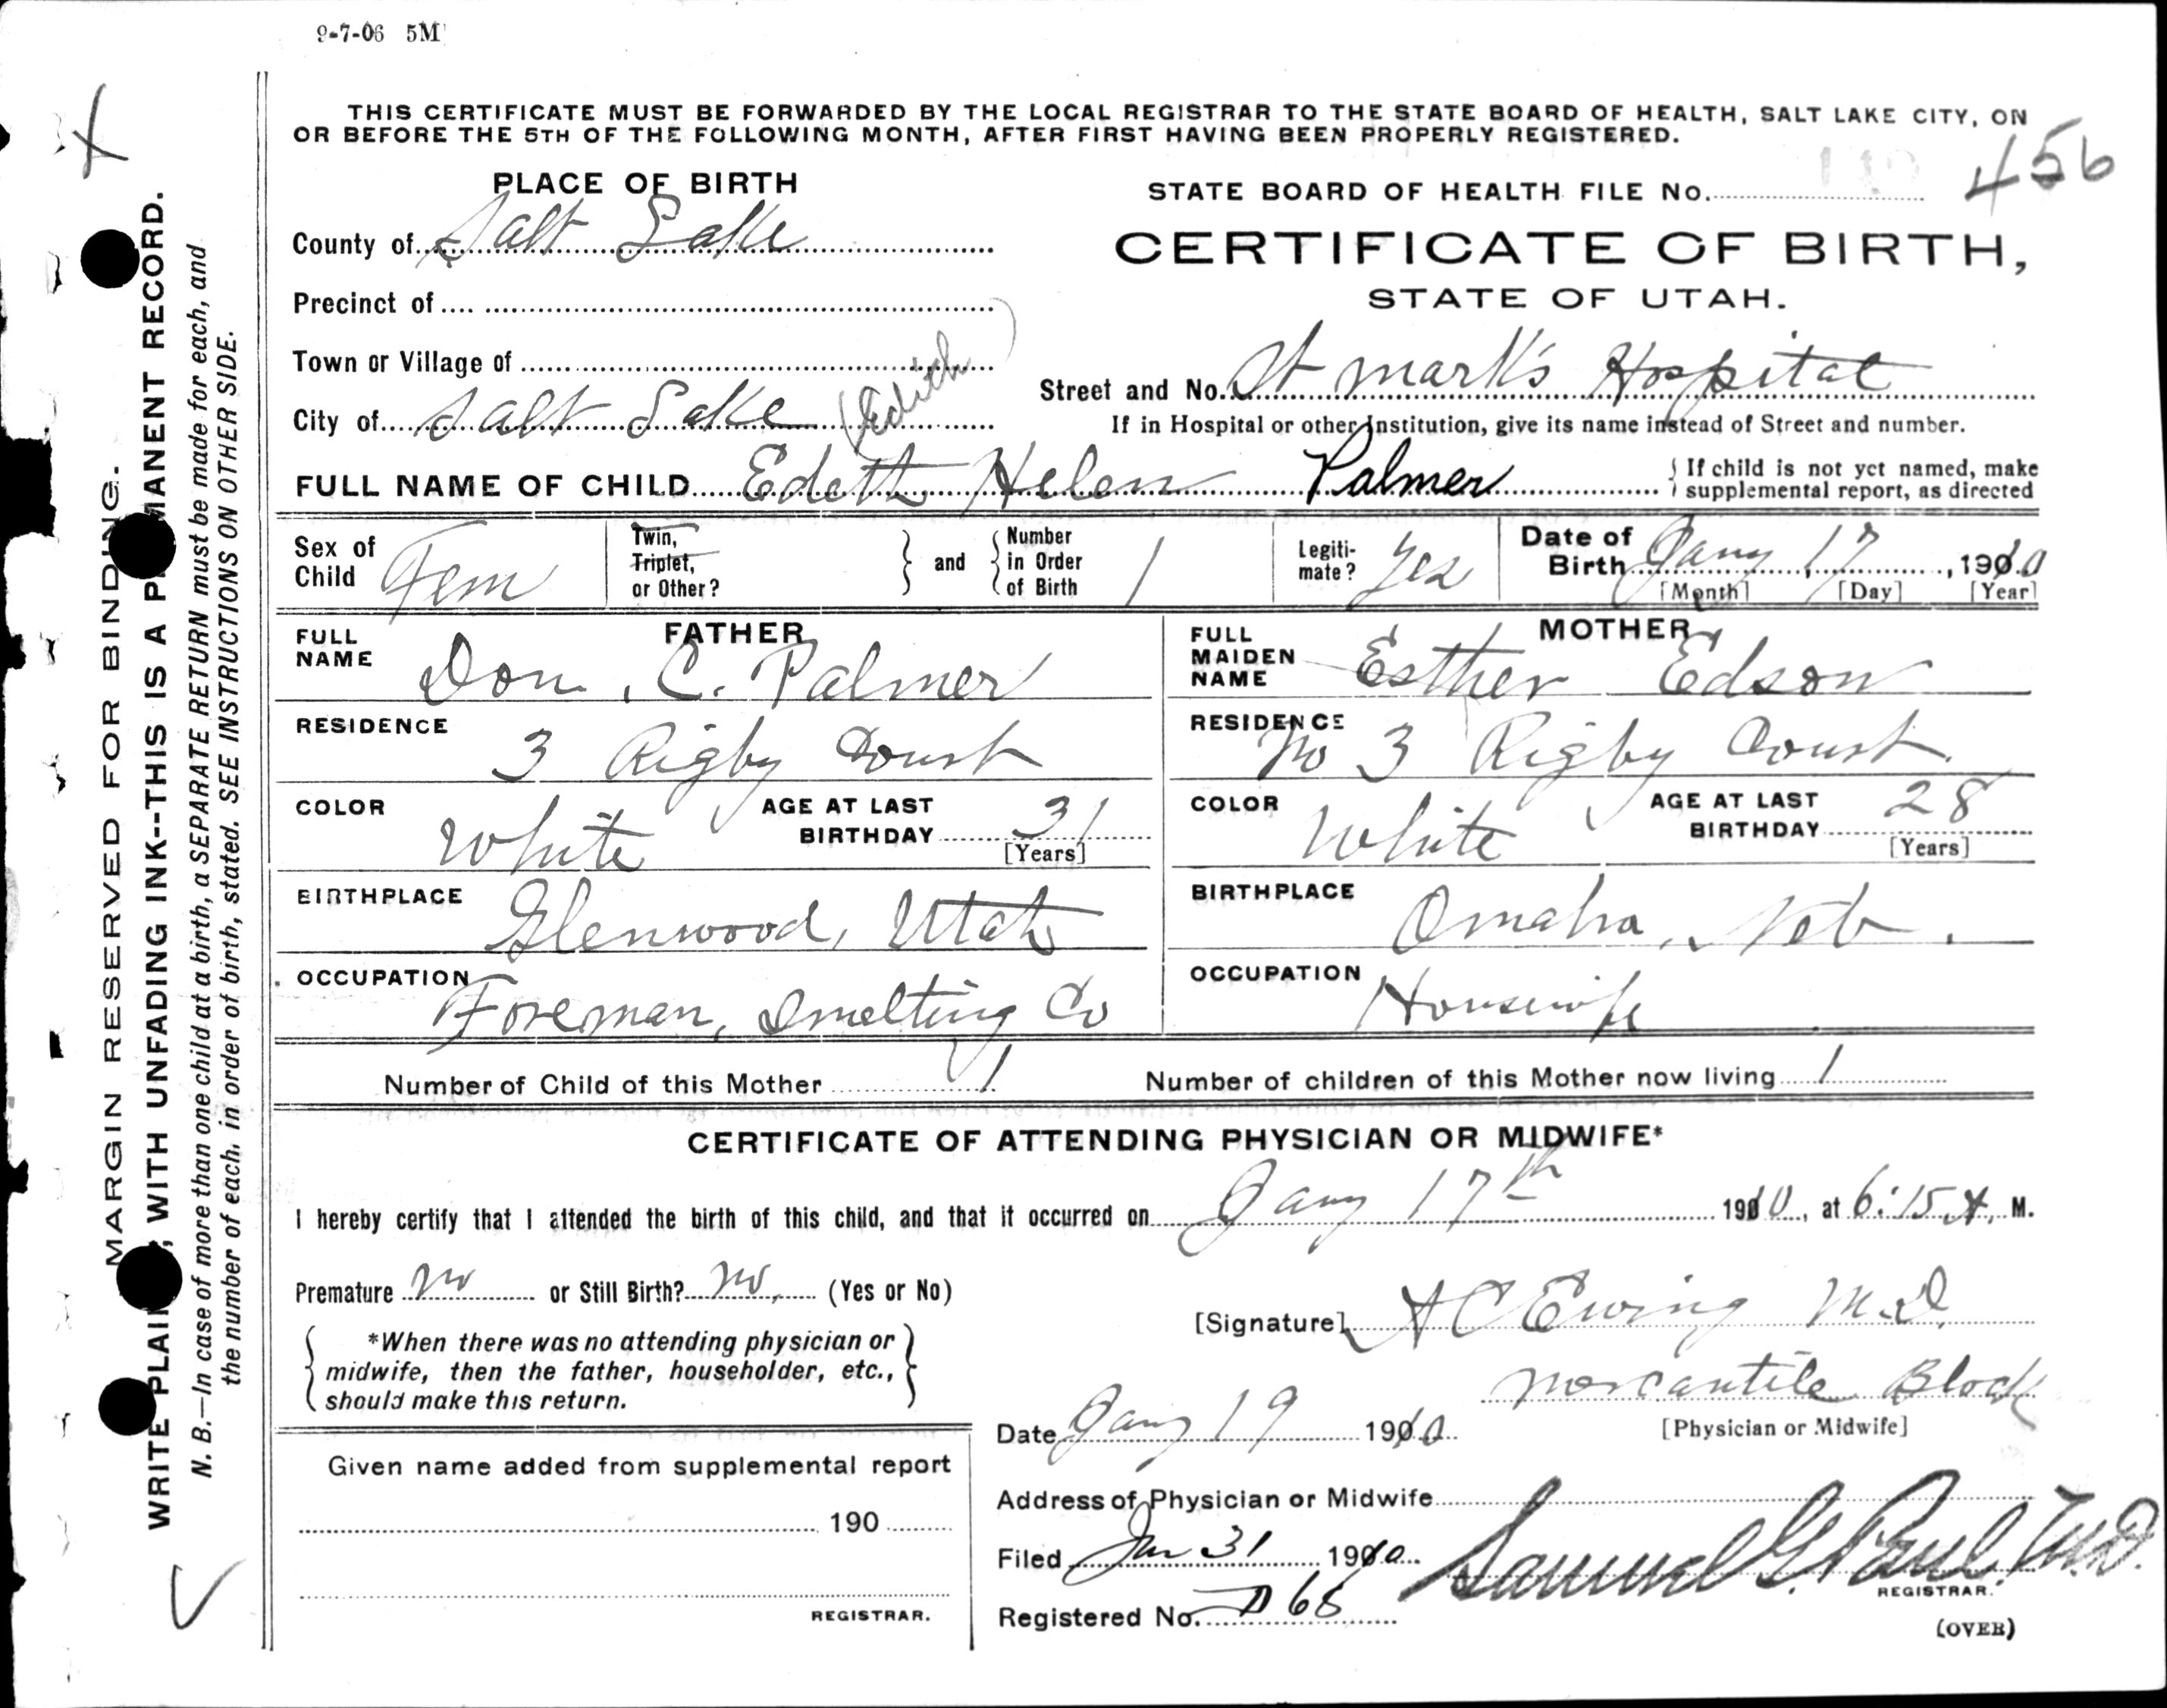 9-7-06 5M
THIS CERTIFICATE MUST BE FORWARDED BY THE LOCAL REGISTRAR TO THE STATE BOARD OF HEALTH, SALT LAKE CITY, ON
OR BEFORE THE 5TH OF THE FOLLOWING MONTH, AFTER FIRST HAVING BEEN PROPERLY REGISTERED.
456
PLACE OF BIRTH
County of Salt Lake
Precinct of
Town or Village of
City of Salt Lake
(Edith
STATE BOARD OF HEALTH FILE No.
CERTIFICATE OF BIRTH,
STATE OF UTAH.
Street and No. St Mark's Hospital
If in Hospital or other Institution, give its name instead of Street and number.
FULL NAME OF CHILD Edeth Helen Palmer
If child is not yet named, make
supplemental report, as directed
Sex of Child Fem
Twin, Triplet, or Other?
and
Number in Order of Birth 1
Legiti-mate? Yes
Date of Birth Jany 17, 1910
[Month] [Day] [Year]
FATHER
FULL NAME Don. C. Palmer
RESIDENCE 3 Rigby Court
COLOR White
AGE AT LAST BIRTHDAY 31
[Years]
BIRTHPLACE Glenwood, Utah
OCCUPATION Foreman, Smelting Co
MOTHER
FULL MAIDEN NAME Esther Edson
RESIDENCE No 3 Rigby Court.
COLOR White
AGE AT LAST BIRTHDAY 28
[Years]
BIRTHPLACE Omaha, Neb.
OCCUPATION Housewife
Number of Child of this Mother 1
Number of children of this Mother now living 1
CERTIFICATE OF ATTENDING PHYSICIAN OR MIDWIFE*
I hereby certify that I attended the birth of this child, and that it occurred on Jany 17th 1910, at 6:15 A. M.
Premature no or Still Birth? no, (Yes or No)
*When there was no attending physician or
midwife, then the father, householder, etc.,
should make this return.
[Signature] A C Ewing M.D.
Mercantile Block
[Physician or Midwife]
Date Jany 19 1910
Given name added from supplemental report
190
REGISTRAR.
Address of Physician or Midwife
Filed Jan 31 1910
Samuel G. Paul, M.D.
REGISTRAR.
Registered No. D 68
(OVER)
MARGIN RESERVED FOR BINDING.
WRITE PLAINLY, WITH UNFADING INK--THIS IS A PERMANENT RECORD.
N. B.—In case of more than one child at a birth, a SEPARATE RETURN must be made for each, and
the number of each, in order of birth, stated. SEE INSTRUCTIONS ON OTHER SIDE.